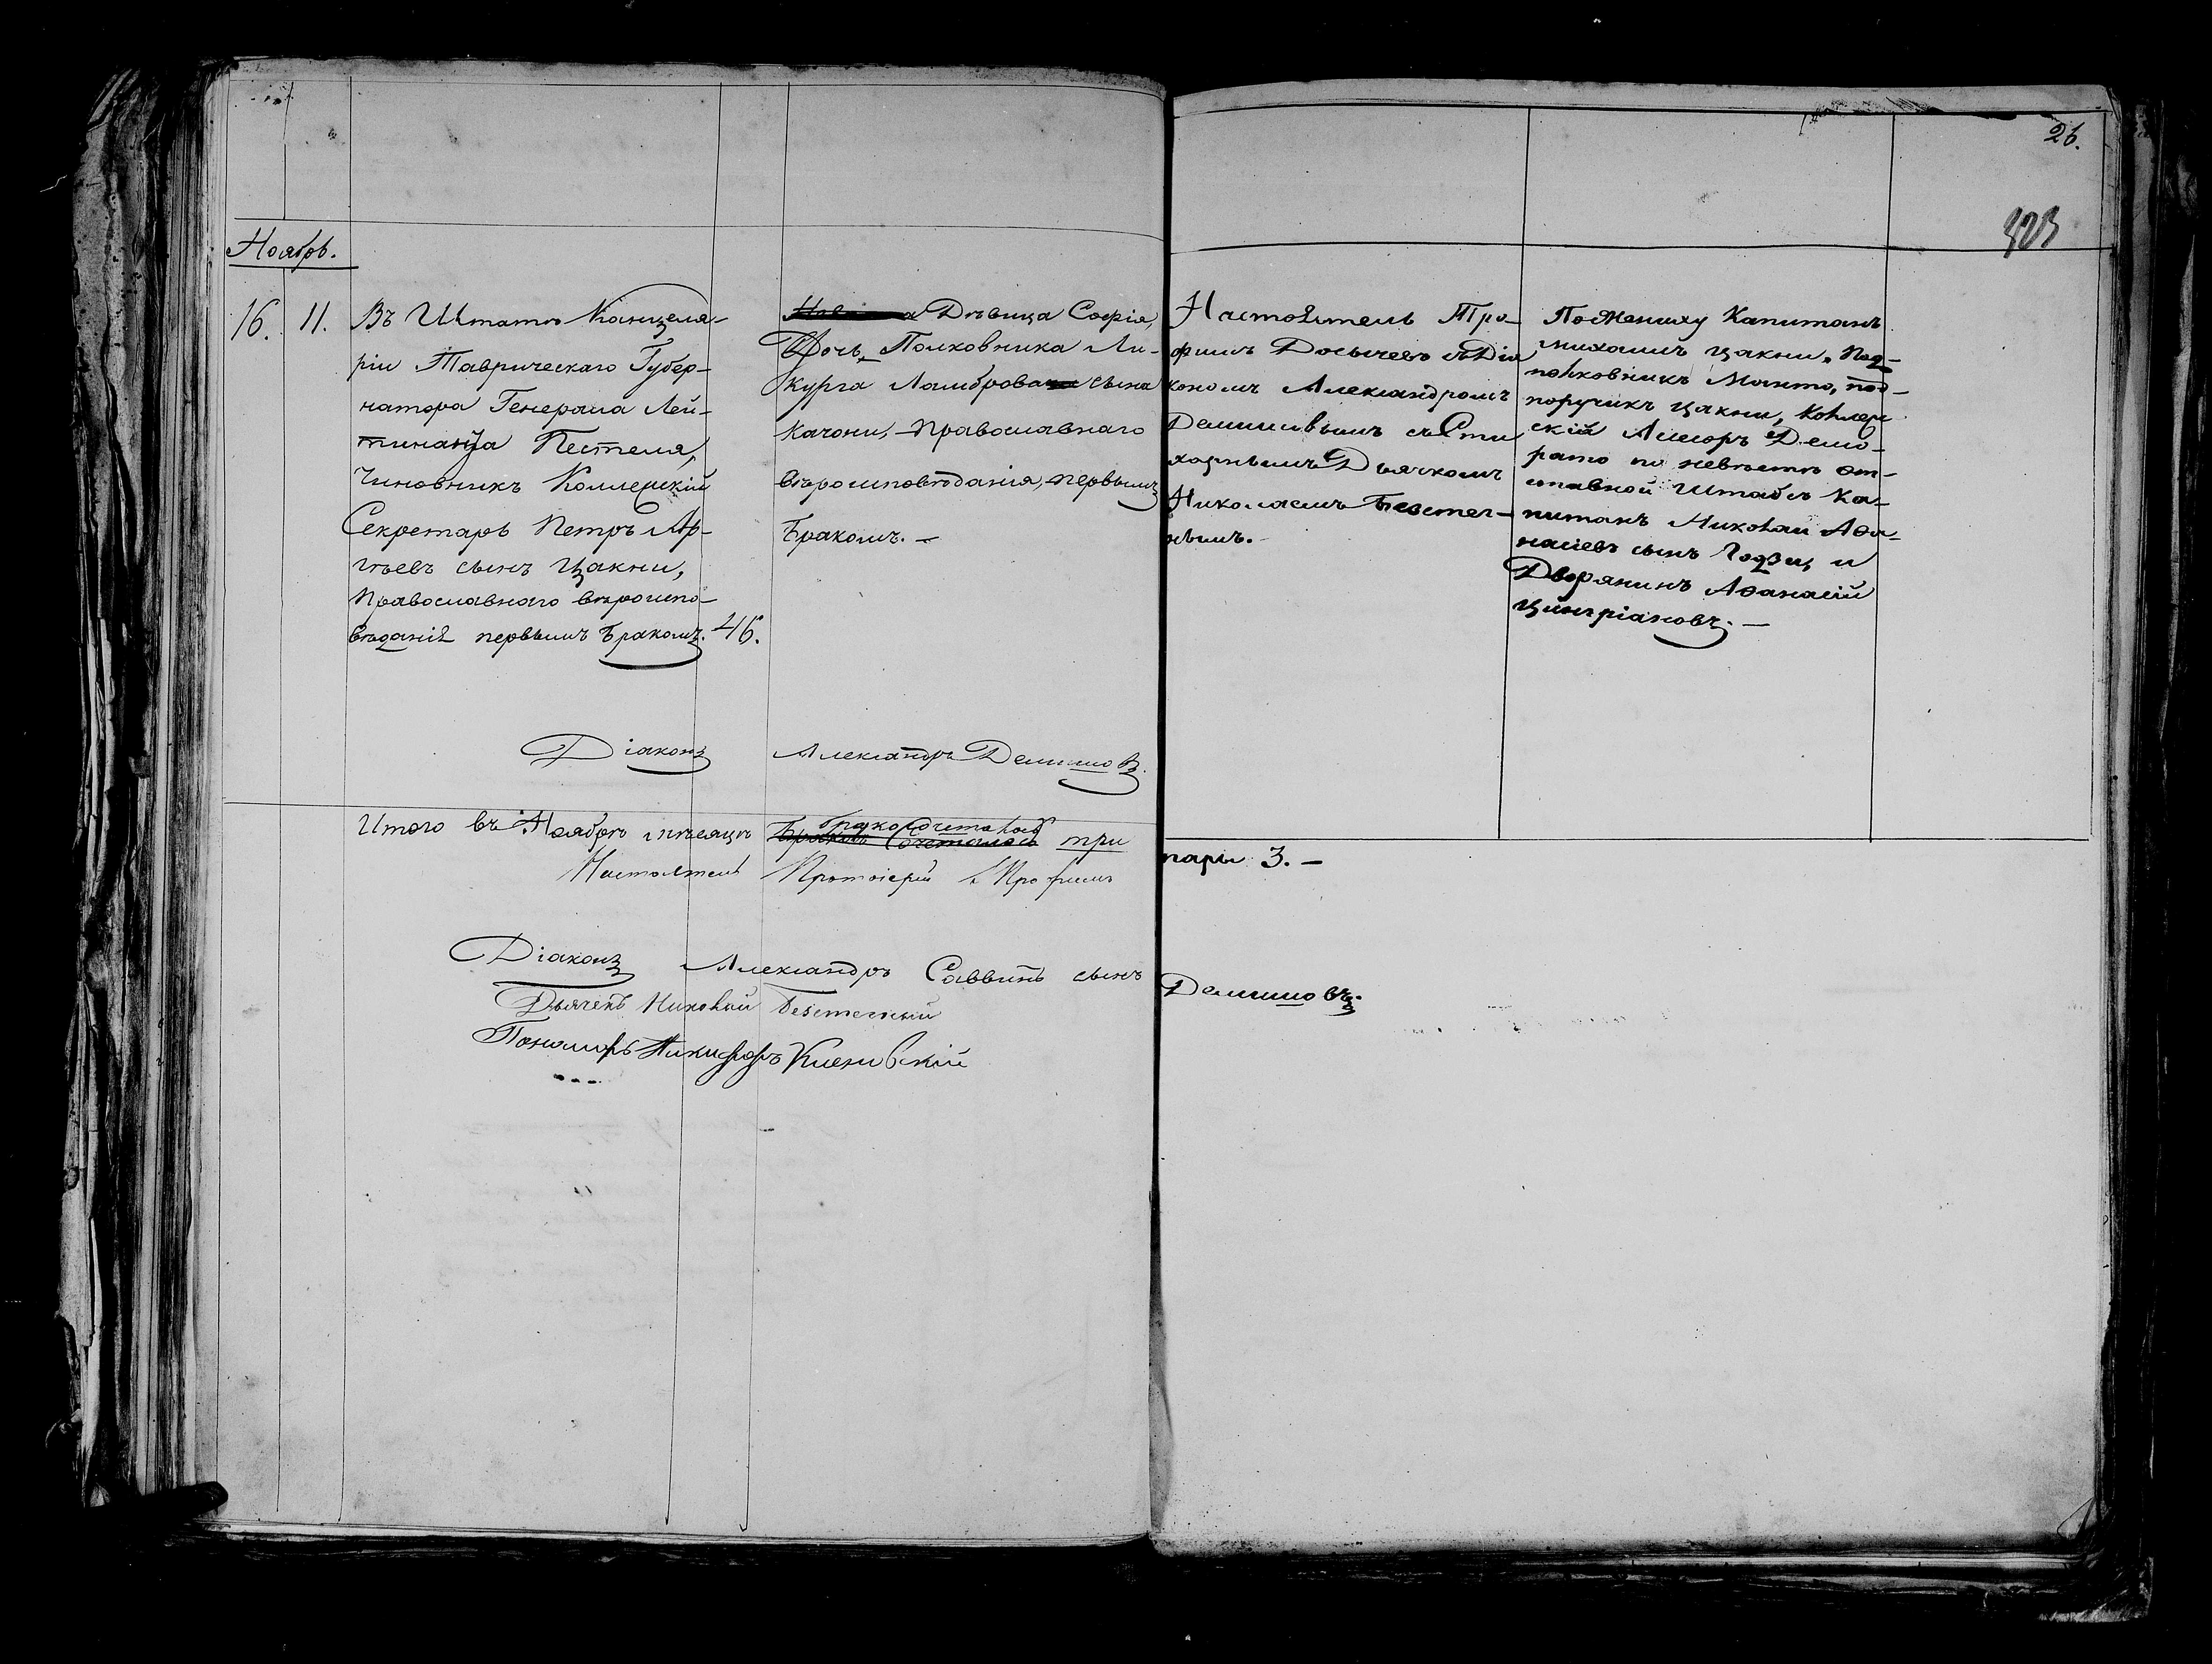 26.
323
Ноябрь.
16. 11. Въ Штатъ Канцеля-
ріи Таврическаго Губер-
натора Генерала Лей-
тинанта Пестеля,
Чиновникъ Коллежскій
Секретарь Петръ Ар-
гиевъ сынъ Цакни,
Православнаго вѣроиспо-
вѣданія первымъ бракомъ. 46.
Дѣвица Софія,
Дочь Полковника Ли-
курга Ламброва сына
Качони, Православнаго
вѣроисповѣданія, первымъ
бракомъ. —
Настоятель Тро-
фимъ Досычевъ съ Діа
кономъ Александромъ
Демишевымъ съ Сти
харнымъ Дьячкомъ
Николаемъ Безтеч-
нымъ.
По Жениху Капитанъ
михаилъ Цакни, Под-
полковникъ Манто, под-
поручикъ Цакни, Коллеж
скій Асесоръ Демо-
рато по невѣстѣ от-
ставной Штабсъ Ка-
питанъ Николай Аѳа-
насіевъ сынъ Годзи, и
Дворянинъ Аѳанасій
Цингріановъ. —
Діаконъ Александръ Демишовъ.
Итого въ Ноябрѣ мѣсяцѣ Бракосочеталось три пары 3. —
Настоятель Протоіерей Трофимъ
Діаконъ Александръ Саввинъ сынъ Демишовъ.
Дьячекъ Николай Безтечный
Пономарь Никифоръ